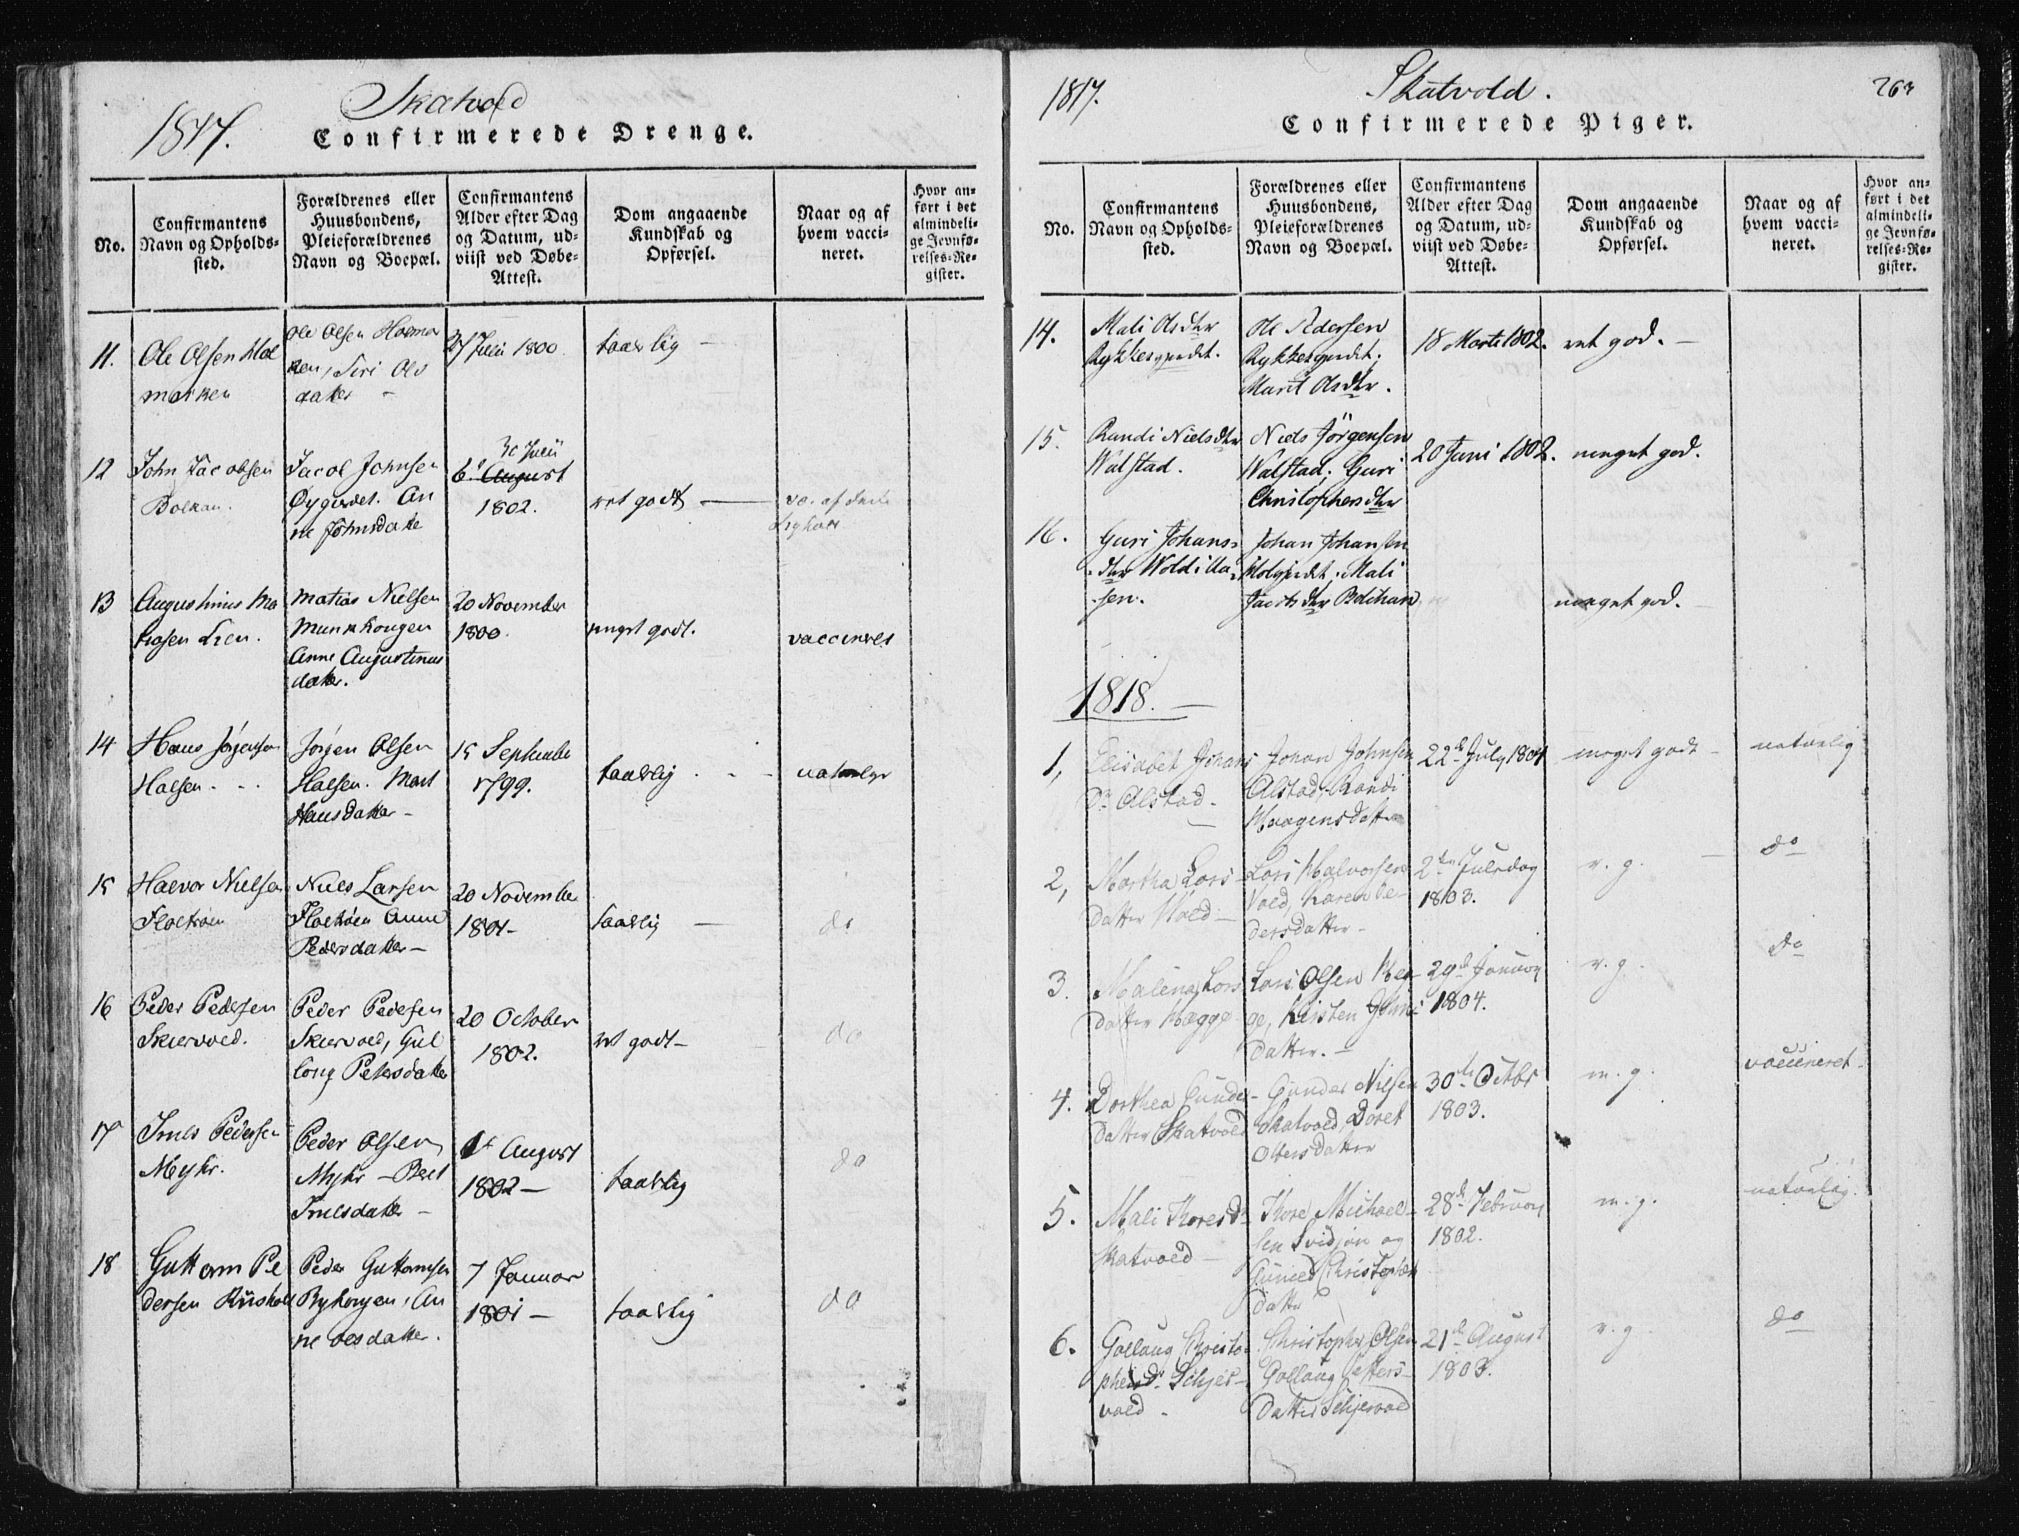 1817. Skatvold
Confirmerede Drenge.
No.
Confirmantens
Navn og Opholds-
sted.
Forældrenes eller
Huusbondens,
Pleieforældrenes
Navn og Boepæl.
Confirmantens
Alder efter Dag
og Datum, ud-
viist ved Døbe-
Attest.
Dom angaaende
Kundskab og
Opførsel.
Naar og af
hvem vacci-
neret.
Hvor an-
ført i det
almindeli-
ge Jevnfø-
relses-Re-
gister.
11.
Ole Olsen Hol
marken
Ole Olsen Holmar
ken, Siri Ols
datter
27 Julii 1800
taarlig
12
John Jacobsen
Jacob Johnsen
Øygardet. An
ne Johnsdatte
30 Julii
6 August
1802.
ret godt
13
Augustinus Ma
tiasen Lien.
Matias Nielsen
Munkhougen
Anne Augustinus
datter.
20 November
1800.
meget godt.
vaccineret
14
Hans Jørgensen
Halsen.
Jørgen Olsen
Halsen. Marit
Hansdatter
15 September
1799.
taarlig
naturlig
15
Halvor Nielsen
Floetrøen
Niels Larsen
Floetrøen Anne
Pedersdatter
20 November
1801
taarlig
do
16
Peder Pedersen
Skiervold.
Peder Pedersen
Skiervold, Gul
long Petersdatter
20 October
1802.
ret godt
do
17
Irnels Pedersen
Myhr.
Peder Olsen
Myhr - Beret
Irnelsdatter
1t August
1802
taarlig
do
18
Guttorm Pe
dersen
Peder Guttormsen
Ryhougen, An
ne Olsdatter.
7 Januar
1801
taarlig
do
1817. Skatvold. 263
Confirmerede Piger.
No.
Confirmantens
Navn og Opholds-
sted.
Forældrenes eller
Huusbondens,
Pleieforældrenes
Navn og Boepæl.
Confirmantens
Alder efter Dag
og Datum, ud-
viist ved Døbe-
Attest.
Dom angaaende
Kundskab og
Opførsel.
Naar og af
hvem vacci-
neret.
Hvor an-
ført i det
almindeli-
ge Jevnfø-
relses-Re-
gister.
14.
Mali Olsdtr
Rykkesgjerdet.
Ole Pedersen
Rykkesgjerdet;
Marit Olsdtr.
18 Marti 1802.
ret god.
15.
Randi Nielsdtr
Walstad.
Niels Jörgensen
Walstad; Guri
Christophersdtr
20 Juni 1802.
meget god.
16.
Guri Johans-
dtr
Johan Johansen
Mali
meget god.
1818.
1,
Elisabet Johans
Dr Alstad.
Johan Johnsen
Alstad, Randi
Haagensdatter
22de July 1804
meget godt
naturlig
2,
Martha Lars
datter Vold
Lars Halvorsen
Vold, Karen Pe-
dersdatter
2den Juledag
1803.
m. g.
do
3.
Malena Lars
datter Hegge
Lars Olsen Heg-
ge, Kirsten
datter.
29de January
1804.
m. g.
do
4.
Dorthea Gunder-
datter Skatvold
Gunder Nilsen
Skatvold, Doret
Olversdatter
30te Octbr
1803.
m. g.
vaccineret
5.
Mali Thoresd.
Skatvold
Thore Michael-
sen Svidjon og
Gunild Christopher
datter
28de February
1802.
m. g.
naturlig
6.
Gollaug Christo-
phersd. Schjer-
vold.
Christopher Olsen
Gollaug
datter Schjervold
21de August
1803.
m. g.
do